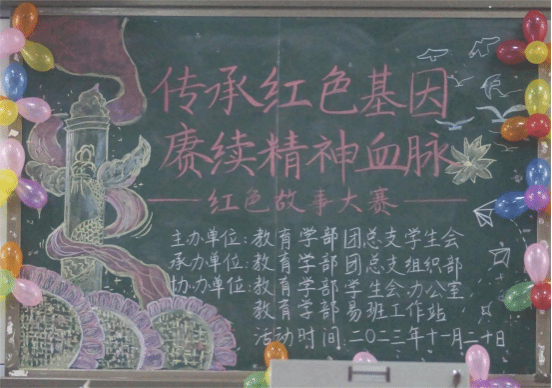 传承红色基因
赓续精神血脉
——红色故事大赛——
主办单位:教育学部团总支学生会
承办单位:教育学部团总支组织部
协办单位:教育学部学生会办公室
教育学部易班工作站
活动时间:二〇二三年十一月二十日